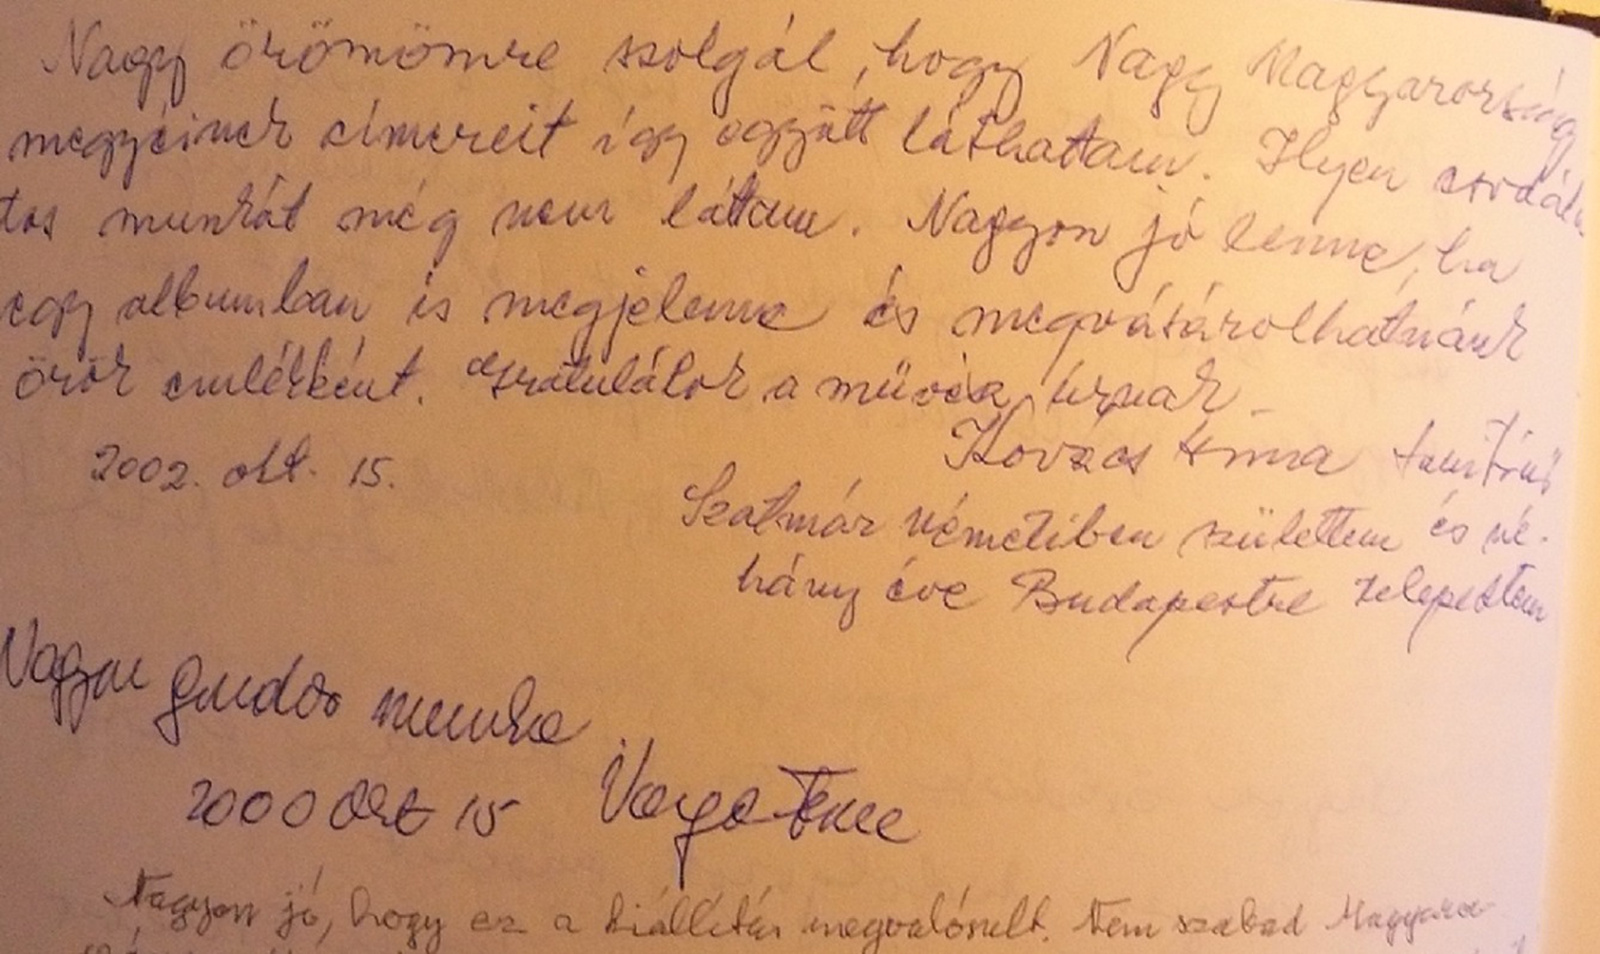 Nagy örömömre szolgál, hogy Nagy Magyarország
megyéinek címereit így együtt láthattam. Ilyen csodála
tos munkát még nem láttam. Nagyon jó lenne, ha
egy albumban is megjelenne és megvásárolhatnánk
örök emlékként. Gratulálok a művész úrnak.
Kovács Anna tanítónő
2002. okt. 15.
Szatmár németiben születtem és né-
hány éve Budapestre települtem
Nagyon gondos munka
2000 Okt 15 Varga
Nagyon jó, hogy ez a kiállítás megvalósult. Nem szabad Magyaro-